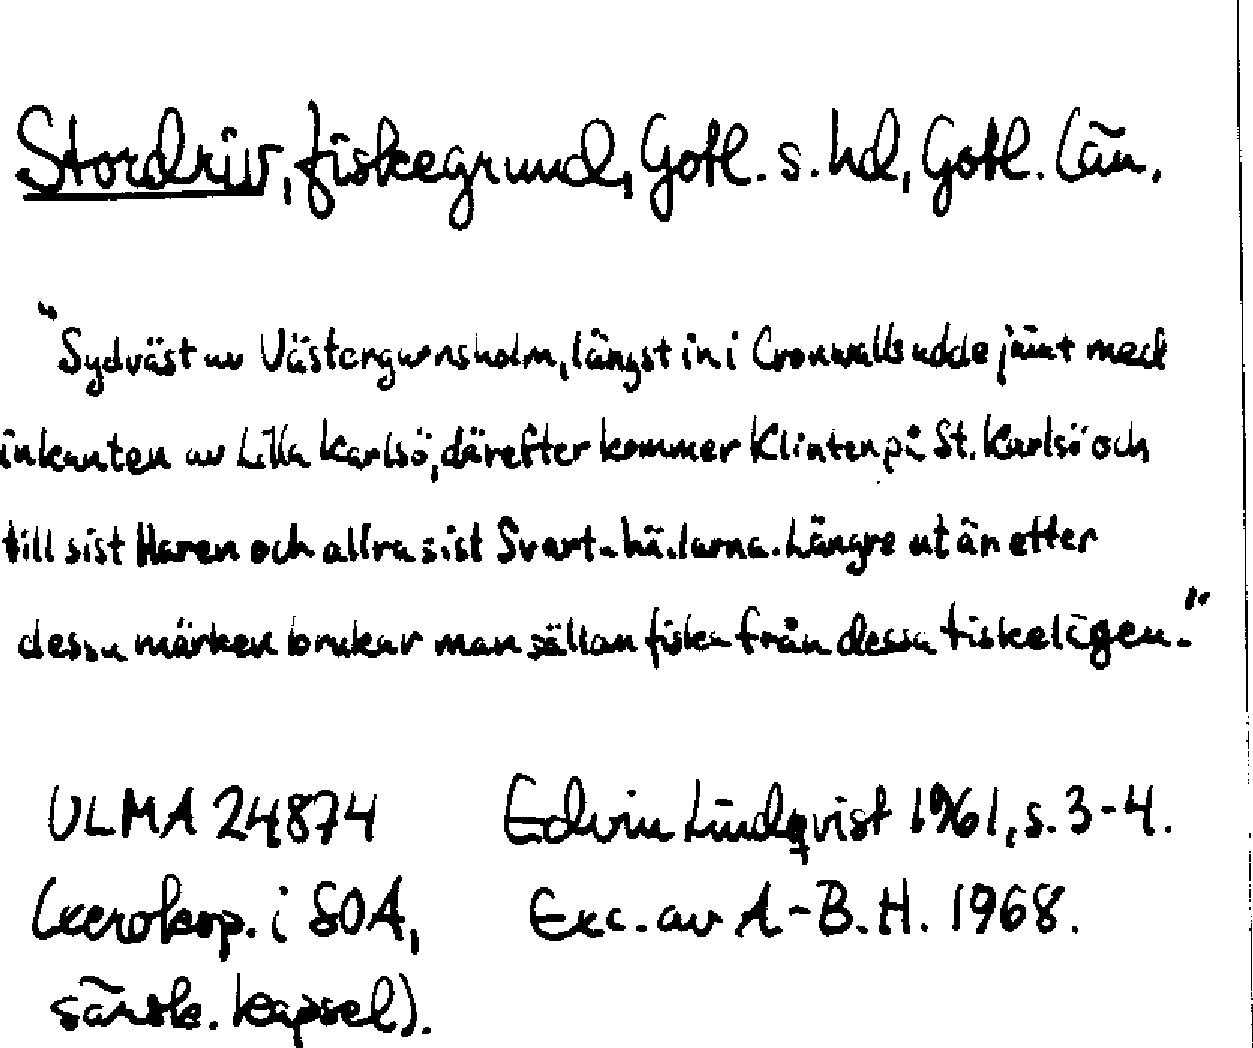 Stordriv, fiskegrund, Gotl. s. hd, Gotl. län.
"Sydväst av Västergarnsholm, längst in i Cronvalls udde jämt med
inkanten av Lilla Karlsö, därefter kommer Klinten på St. Karlsö och
till sist Haren och allra sist Svart-hä.larna. Längre ut än efter
dessa märken brukar man sällan fiska från dessa fiskelägen."
ULMA 24874 Edvin Lindqvist 1961, s. 3-4.
(xerokop. i SOA, Exc. av A-B. H. 1968.
särsk. kapsel).